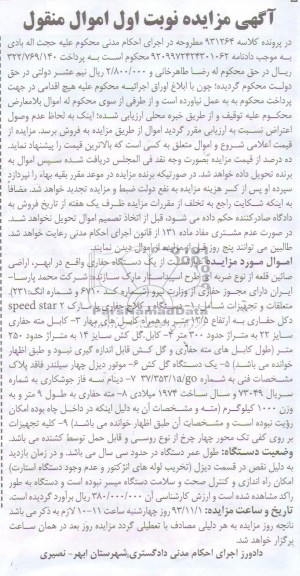 آگهی مزایده نوبت اول اموال منقول
در پرونده کلاسه ۹۳۱۲۶۴ مطروحه در اجرای احکام مدنی محکوم علیه حجت اله بادی
به موجب دادنامه ۹۲۰۹۹۷۲۴۲۴۳۰۱۰۶۲ محکوم است به پرداخت ۳۲۲/۷۶۹/۱۴۰
ریال در حق محکوم له رضا طاهرخانی و ۲/۸۰۰/۰۰۰ ریال نیم عشر دولتی در حق
دولت محکوم گردیده؛ چون با ابلاغ اوراق اجرائیه محکوم علیه هیچ اقدامی در جهت
پرداخت محکوم به به عمل نیاورده است و از طرفی از سوی محکوم له اموال بلامعارض
محکوم علیه توقیف و از طریق خبره محلی ارزیابی شده؛ اینک به لحاظ عدم وصول
اعتراض نسبت به ارزیابی مقرر گردید اموال از طریق مزایده به فروش برسد. مزایده از
قیمت اعلامی شروع و اموال متعلق به کسی است که بالاترین قیمت را پیشنهاد نماید.
ده درصد از قیمت مزایده بصورت وجه نقد فی المجلس دریافت شده سپس اموال به
برنده تحویل داده خواهد شد. در صورتیکه برنده مزایده در موعد مقرر بقیه بهاء را نپردازد
سپرده او پس از کسر هزینه مزایده به نفع دولت ضبط و مزایده تجدید خواهد شد. مضافاً
به اینکه شکایت راجع به تخلف از مقررات مزایده ظرف یک هفته از تاریخ فروش به
دادگاه صادرکننده حکم داده می شود، قبل از اتخاذ تصمیم اموال تحویل نخواهد شد.
در صورت عدم مشتری مفاد ماده ۱۳۱ از قانون اجرای احکام مدنی رعایت خواهد شد.
طالبین می توانند پنج روز قبل از مزایده از اموال دیدن نمایند.
اموال مورد مزایده عبارت است از یک دستگاه حفاری واقع در ابهر، اراضی
صائین قلعه از نوع ضربه ای طرح اسپیداستار مارک سازنده شرکت محمد پارسا-
ایران دارای مجوز حفاری از وزارت نیرو (شماره کند ۶۷۱۰ و شماره النگ ۲۳۱).
متعلقات و تجهیزات شامل: ۱- دستگاه و کلاج حفاری با مارک speed star ۲-
دکل حفاری به ارتفاع ۱۲/۵ متر به همراه کابل های مهار ۳- کابل مته حفاری
سایز ۲۲ به متراژ حدود ۳۰۰ متر ۴- کابل گل کش سایز ۱۴ به متراژ حدود ۲۵۰
متر (طول کابل های مته حفاری و گل کش قابل اندازه گیری نبود و طبق اظهار
خوانده می باشد) ۵- یک دستگاه گل کش ۶- موتور دیزل چهار سیلندر فاقد پلاک
مشخصات فنی به شماره ۳۷/۳۵۳/۱a/go ۷- دینام سه فاز جوشکاری به شماره
سریال ۷۳۰۴۹ و سال ساخت ۱۹۷۴ میلادی ۸- مته حفاری به طول ۹ متر و به
وزن ۱۰۰۰ کیلوگرم (مته و مشخصات آن به دلیل اینکه در داخل چاه بوده امکان
رؤیت نبوده است و مشخصات آن طبق اظهار خوانده می باشد) ۹- کلیه تجهیزات
بر روی کفی تک محور چهار چرخ از نوع روسی و قابل حمل توسط کشنده می باشد.
وضعیت دستگاه: طول عمر دستگاه در حدود سی سال می باشد. و در زمان بازدید
به دلیل نقص در قسمت دیزل (تخریب لوله های انژکتور و عدم وجود دستگاه استارت)
امکان راه اندازی و کنترل صحت و سلامت دستگاه میسر نبوده است و دستگاه به طور
راکد مشاهده شده است و ارزش کارشناسی آن ۳۸۰/۰۰۰/۰۰۰ ریال برآورد گردیده است.
تاریخ و ساعت مزایده: ۹۳/۱۱/۱ روز چهارشنبه ساعت ۱۱-۱۰ لازم به ذکر می باشد
تانچه روز مزایده به هر دلیلی مصادف با تعطیلی گردد مزایده روز بعد در همان ساعت
برگزار خواهد شد.
دادورز اجرای احکام مدنی دادگستری شهرستان ابهر- نصیری